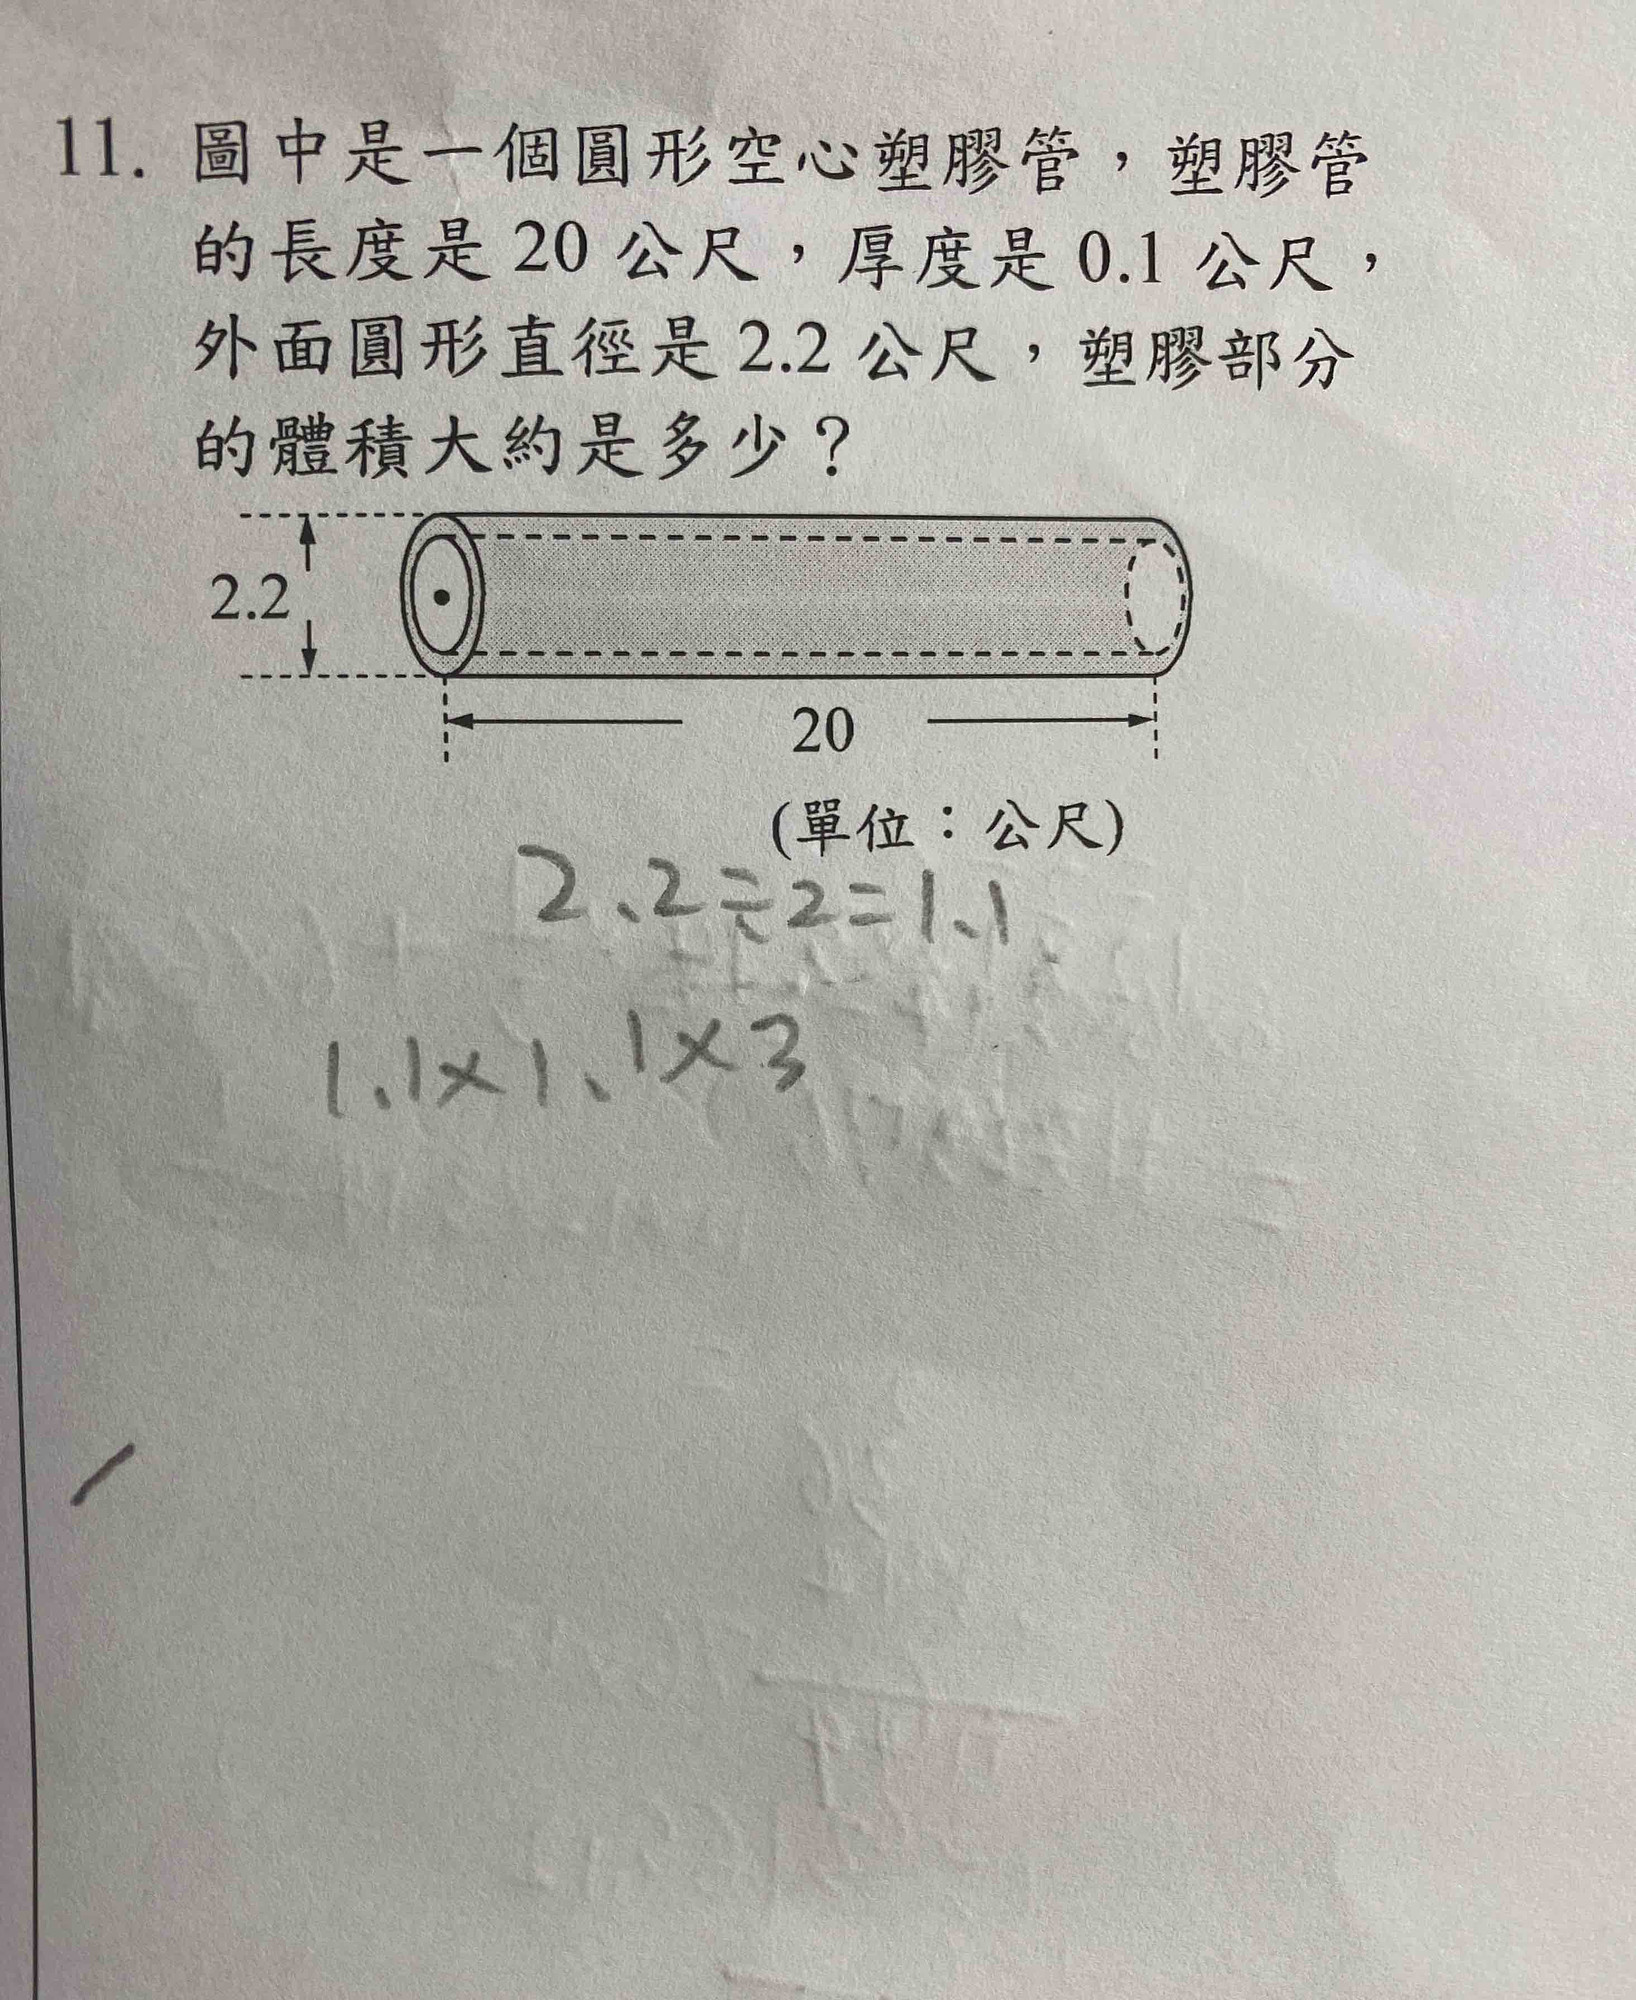 11. 圖中是一個圓形空心塑膠管，塑膠管
的長度是 20 公尺，厚度是 0.1 公尺，
外面圓形直徑是 2.2 公尺，塑膠部分
的體積大約是多少？
2.2
20
(單位：公尺)
2.2÷2=1.1
1.1×1.1×3